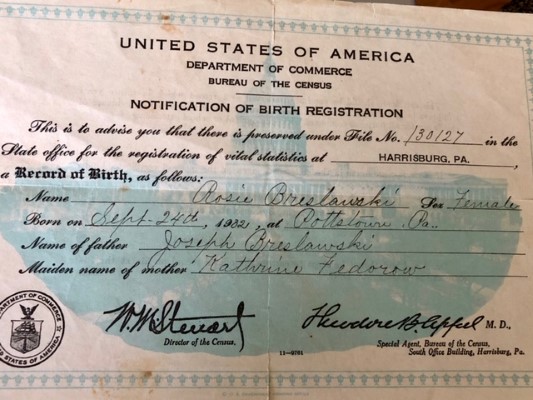 UNITED STATES OF AMERICA
DEPARTMENT OF COMMERCE
BUREAU OF THE CENSUS
NOTIFICATION OF BIRTH REGISTRATION
This is to advise you that there is preserved under File No. 130127 in the
State office for the registration of vital statistics at HARRISBURG, PA.
a Record of Birth, as follows:
Name Rosie Breslawski Sex Female
Born on Sept. 24th, 1932, at Pottstown, Pa.
Name of father Joseph Breslawski
Maiden name of mother Kathrine Fedorow
W.M. Steuart
Director of the Census.
Theodore B. Appel M. D.,
Special Agent, Bureau of the Census,
South Office Building, Harrisburg, Pa.
11—9761
DEPARTMENT OF COMMERCE
UNITED STATES OF AMERICA